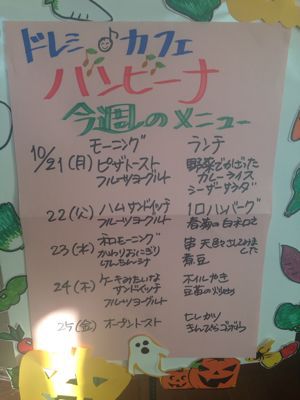 ドレミ♪カフェ
バンビーナ
今週のメニュー
モーニング ランチ
10/21(月) ピザトースト 野菜でかざった
フルーツヨーグルト カレーライス
シーザーサラダ
22(火) ハムサンドイッチ 1口ハンバーグ
フルーツヨーグルト 春菊の白和え
23(水) 和モーニング
かわりおにぎり 煮豆
けんちん汁
24(木) ケーキみたいな ホイルやき
サンドイッチ 豆苗の
フルーツヨーグルト
25(金) オープントースト ヒレカツ
きんぴらゴボウ